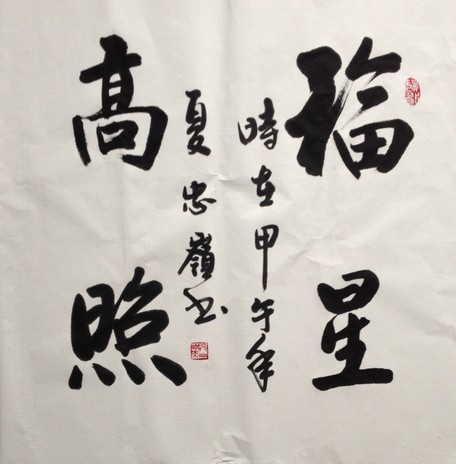 福星
時在甲午年
夏忠嶺书
高照